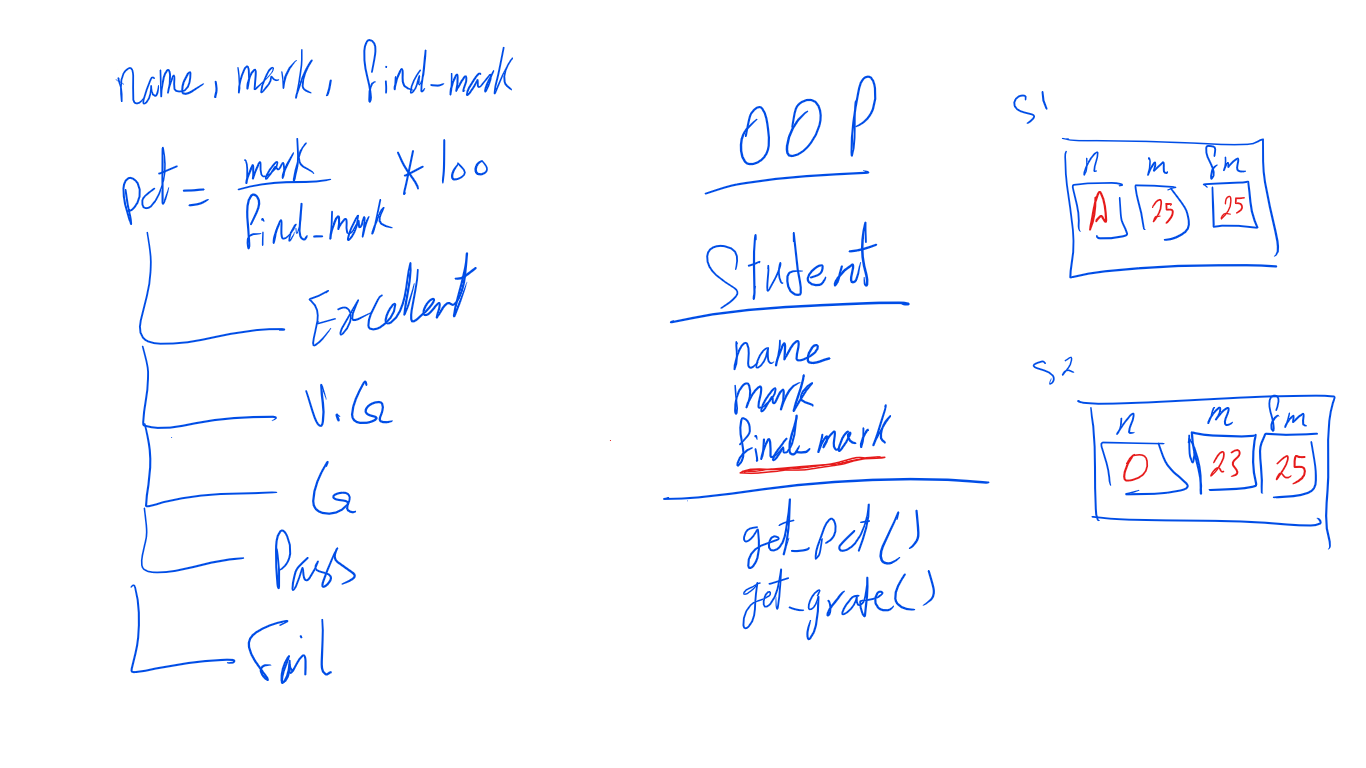 name, mark, final_mark
pct = mark / final_mark * 100
Excellent
V.G
G
Pass
Fail
OOP
Student
name
mark
final_mark
get_pct()
get_grate()
S1
n m fm
A 25 25
S2
n m fm
O 23 25